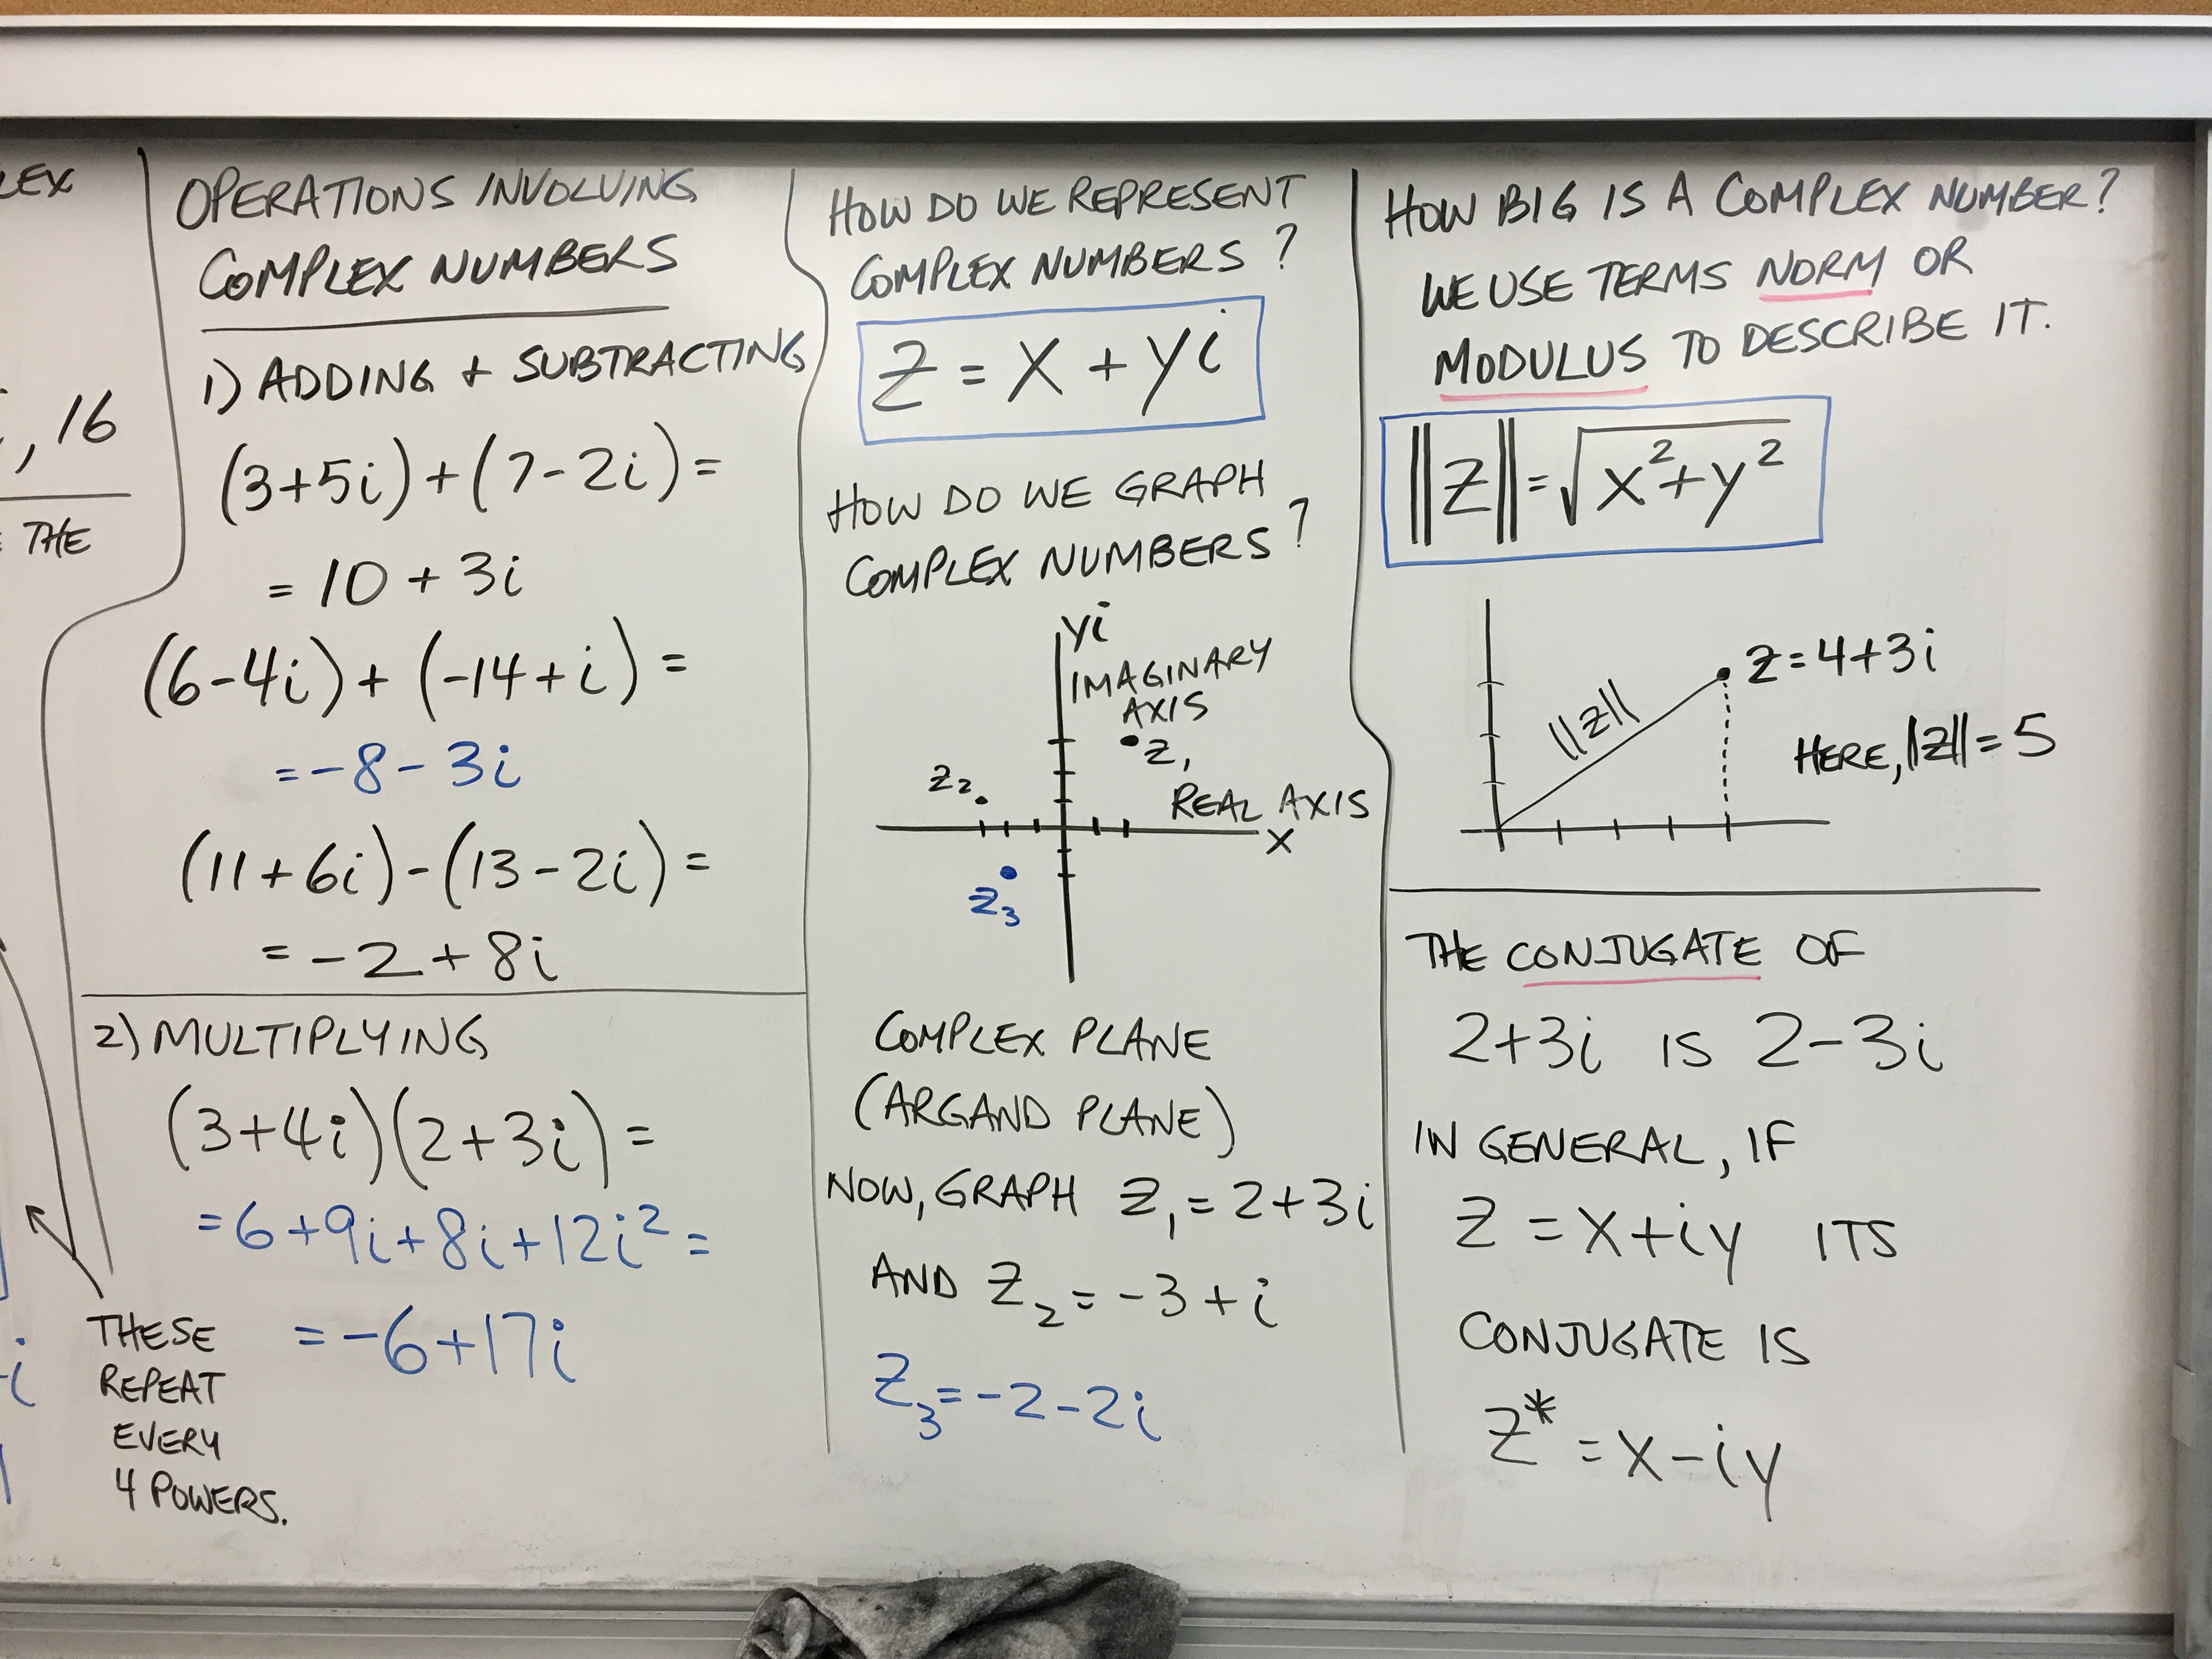 LEX
, 16
THE
THESE
REPEAT
EVERY
4 POWERS.
OPERATIONS INVOLVING
COMPLEX NUMBERS
1) ADDING + SUBTRACTING
(3+5i)+(7-2i)=
= 10 + 3i
(6-4i)+(-14+i)=
=-8-3i
(11+6i)-(13-2i)=
= -2+8i
2) MULTIPLYING
(3+4i)(2+3i)=
=6+9i+8i+12i²=
=-6+17i
HOW DO WE REPRESENT
COMPLEX NUMBERS?
Z = X + Yi
HOW DO WE GRAPH
COMPLEX NUMBERS?
Yi
IMAGINARY
AXIS
Z₁
Z₂
REAL AXIS
X
Z₃
COMPLEX PLANE
(ARGAND PLANE)
NOW, GRAPH Z₁=2+3i
AND Z₂=-3+i
Z₃=-2-2i
HOW BIG IS A COMPLEX NUMBER?
WE USE TERMS NORM OR
MODULUS TO DESCRIBE IT.
||Z||=√x²+y²
Z=4+3i
||Z||
HERE, ||Z||=5
THE CONJUGATE OF
2+3i IS 2-3i
IN GENERAL, IF
Z = X+iy ITS
CONJUGATE IS
Z* = X-iy